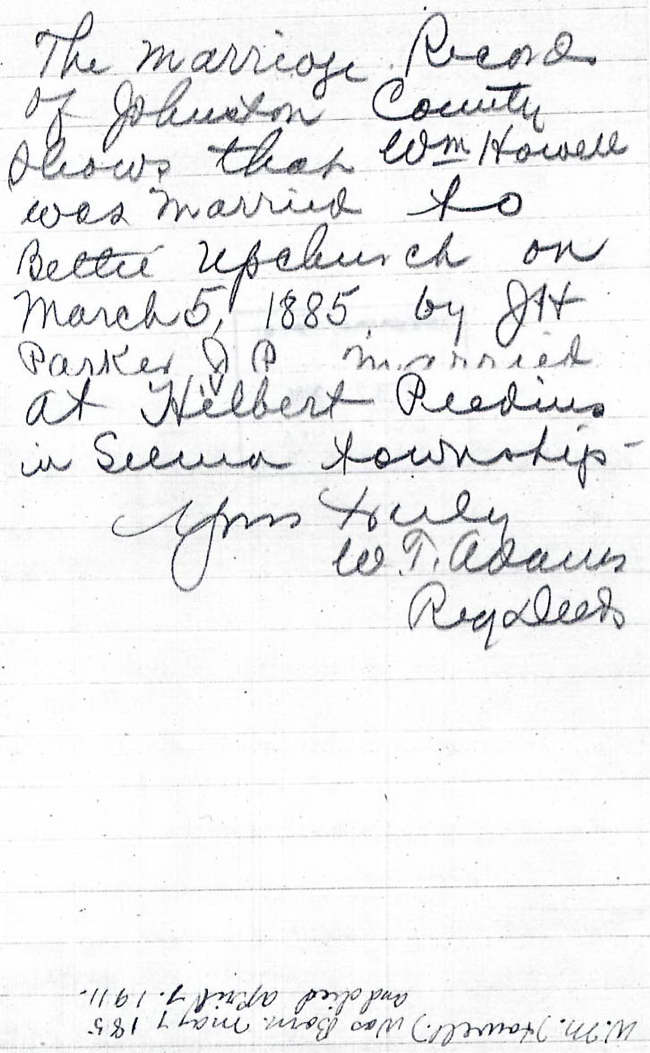 The Marriage Record
of Johnston County
shows that Wm Howell
was married to
Bettie Upchurch on
March 5, 1885, by JH
Parker J P married
at Hilbert Peedins
in Selma township -
Yours truly
W. T. Adams
Reg Deeds
W. M. Howell. was Born. may 7 185
and died april 7. 1911.